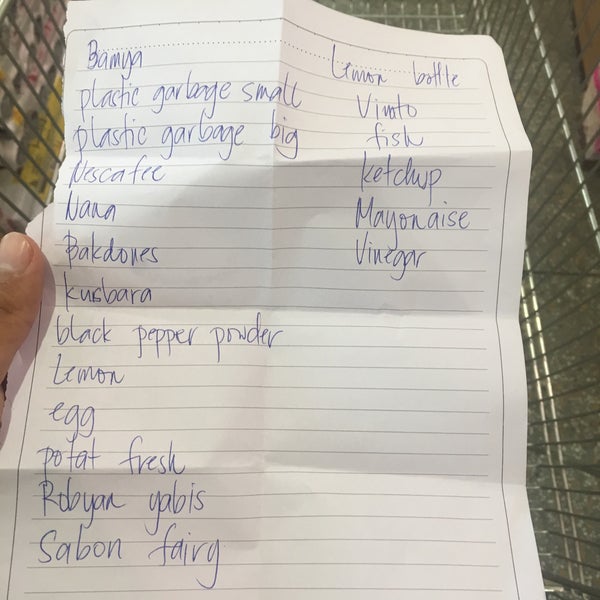 Bamya
plastic garbage small
plastic garbage big
Nescafee
Nana
Bakdones
kusbara
black pepper powder
Lemon
egg
potat fresh
Robyan yabis
Sabon fairy
Lemon bottle
Vimto
fish
ketchup
Mayonaise
Vinegar